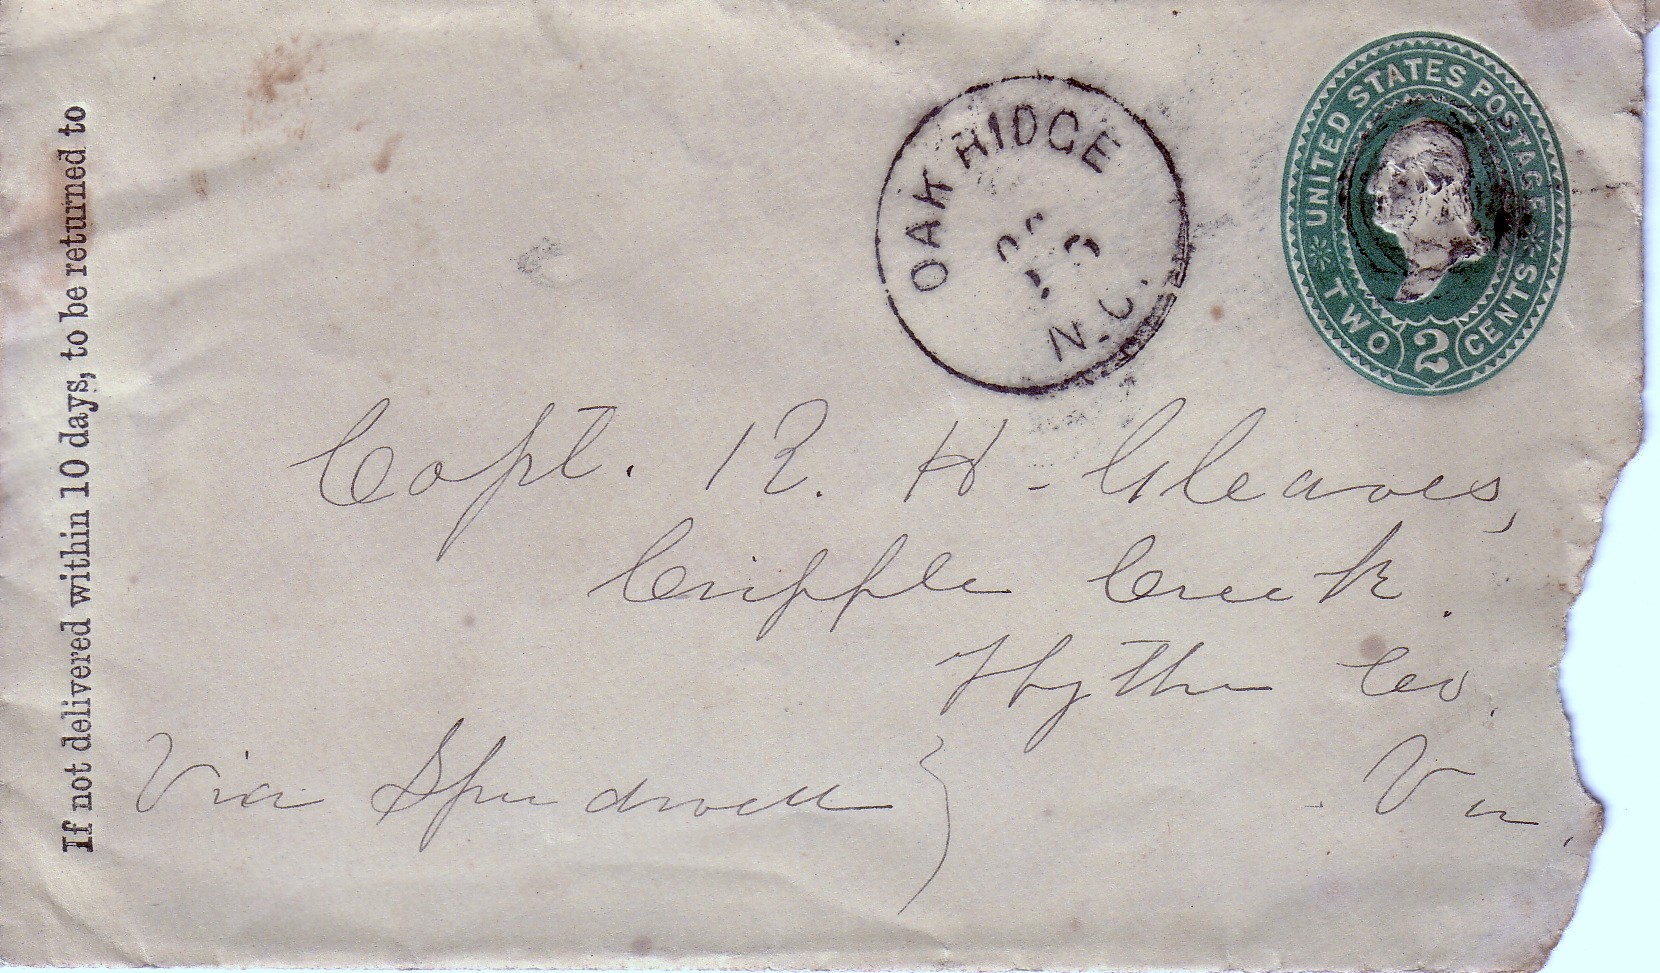 If not delivered within 10 days, to be returned to
OAK RIDGE
N.C.
UNITED STATES POSTAGE
TWO 2 CENTS
Capt. R. H. Gleaves,
Cripple Creek.
Wythe Co.
Via Speedwell } Va.